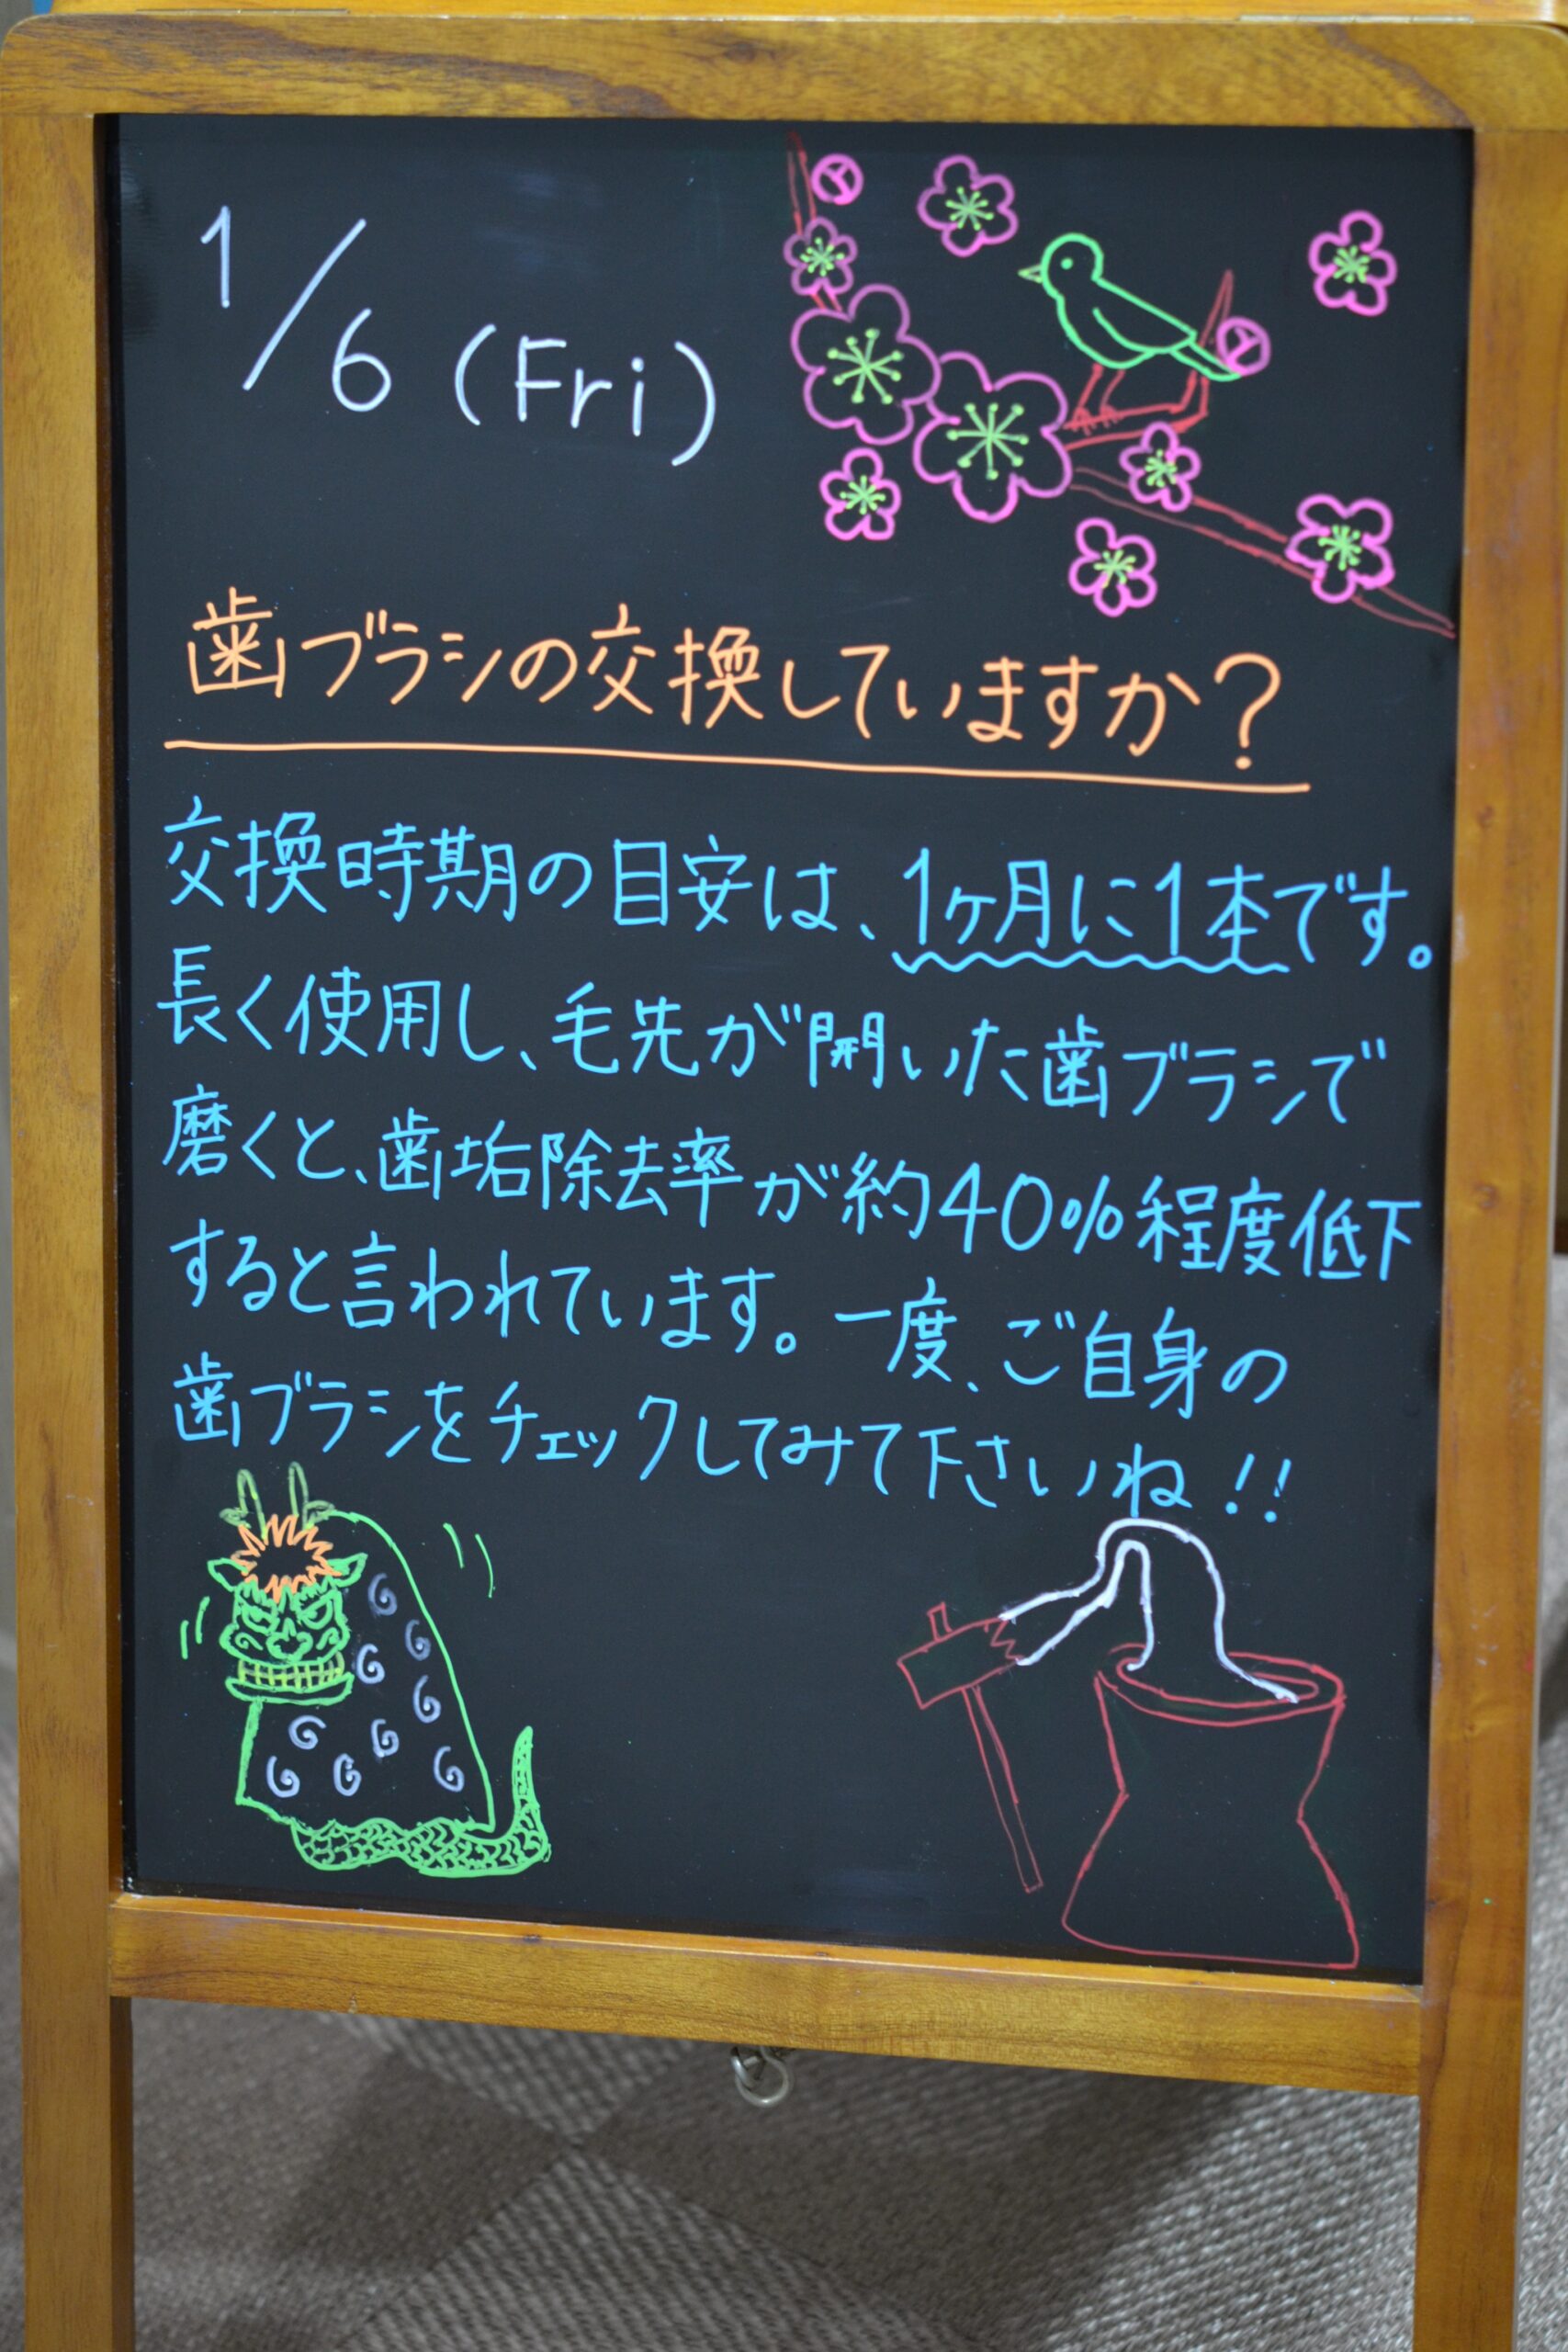 1/6 (Fri)
歯ブラシの交換していますか?
交換時期の目安は、1ヶ月に1本です。
長く使用し、毛先が開いた歯ブラシで
磨くと、歯垢除去率が約40%程度低下
すると言われています。一度、ご自身の
歯ブラシをチェックしてみて下さいね!!